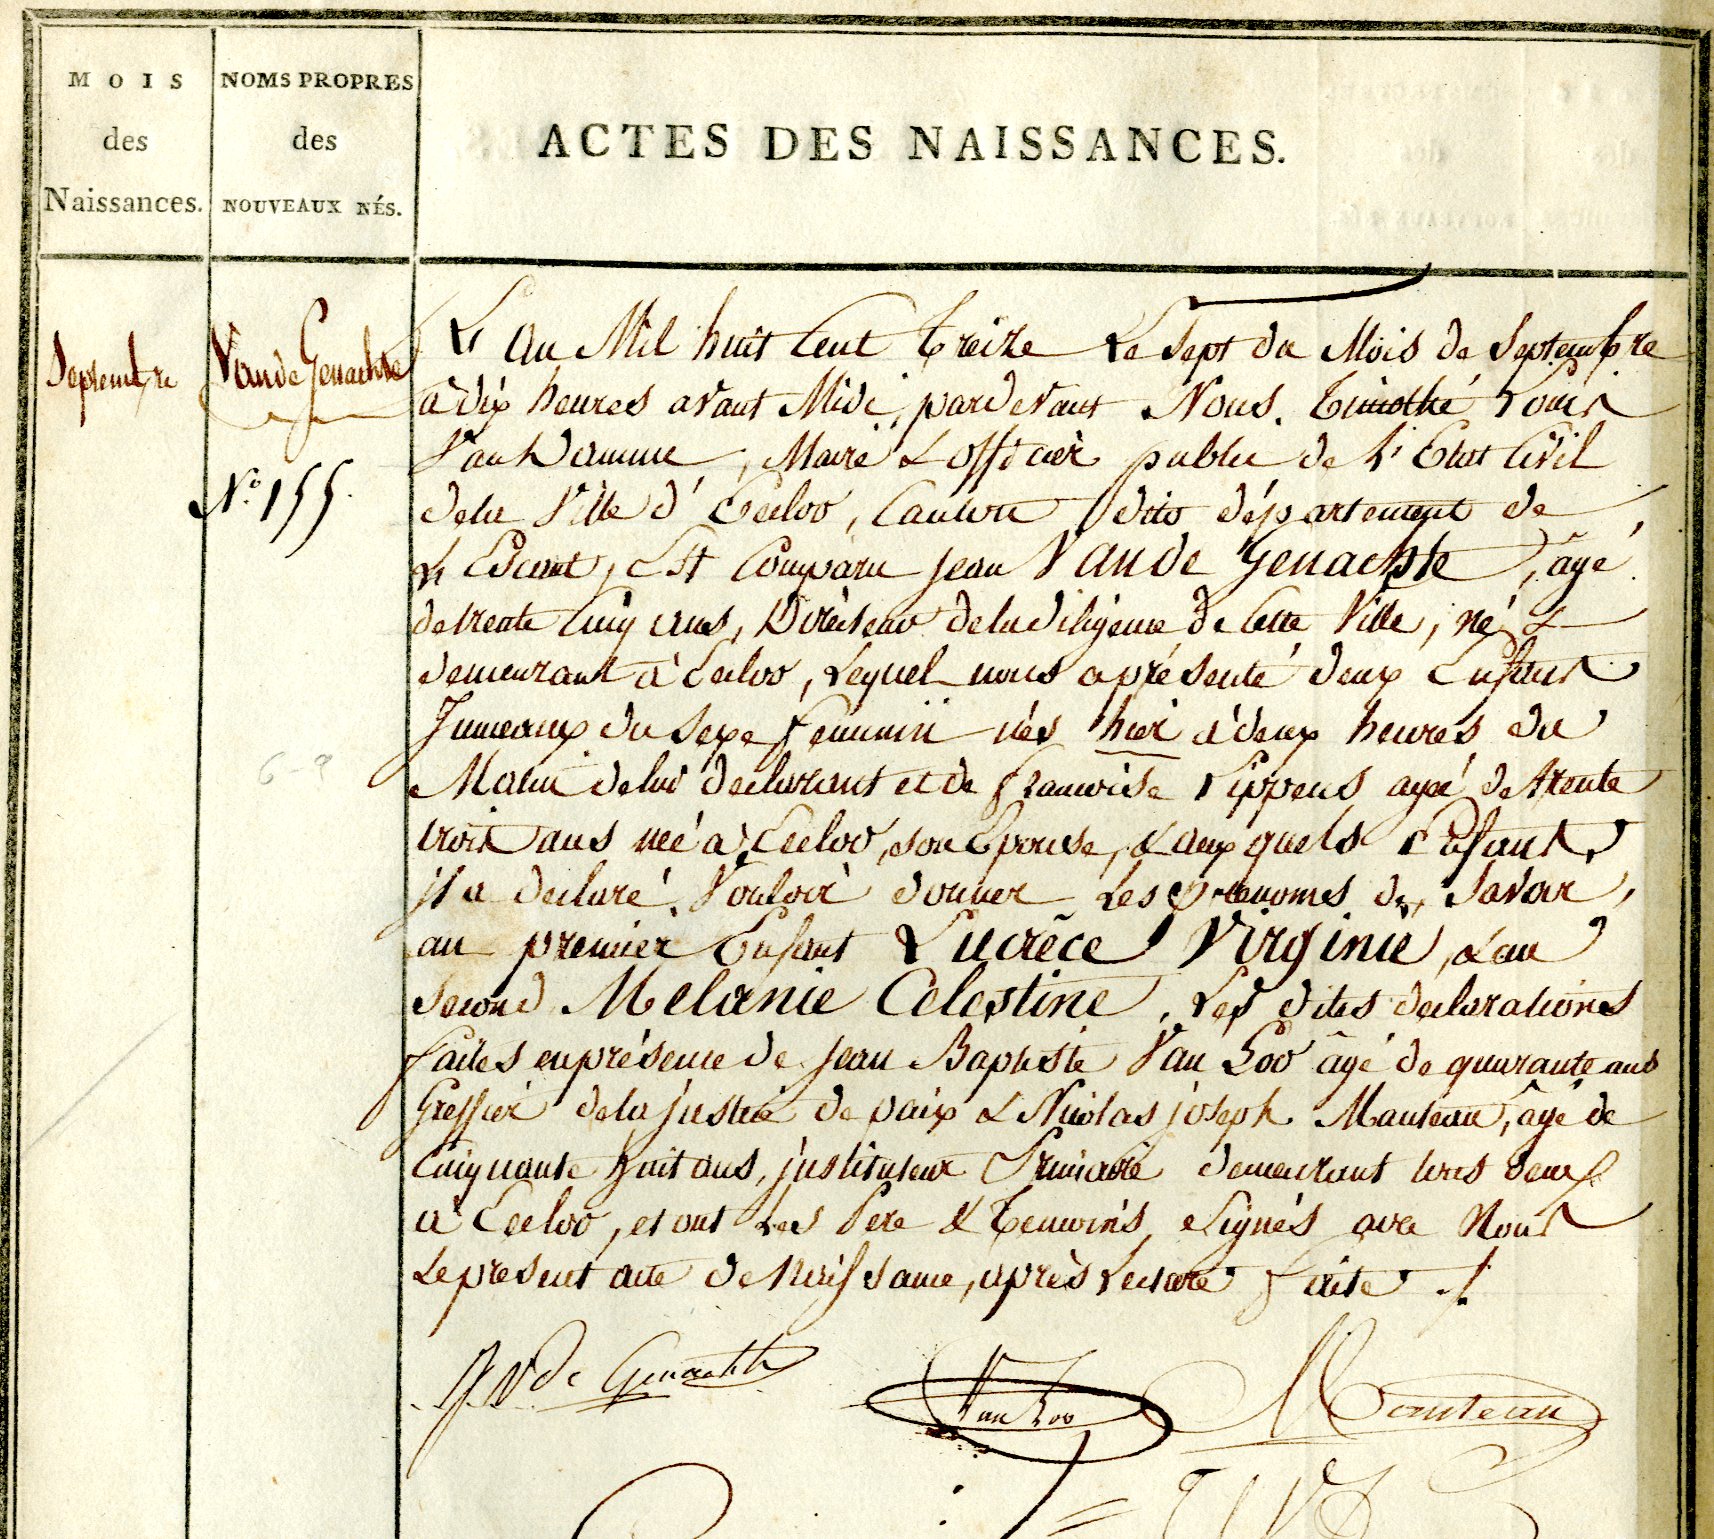 MOIS
des
Naissances.
NOMS PROPRES
des
NOUVEAUX NÉS.
ACTES DES NAISSANCES.
Septembre
Van de Genachte
N.° 155.
L'an Mil huit Cent treize Le Sept du Mois de Septembre
à dix heures avant Midi, pardevant Nous. Timothé Louis
Van Damme, Maire & officier public de L'Etat Civil
de la Ville d'Eecloo, Canton dito département de
L'Escaut, Est Comparu jean Van de Genachte, âgé
de trente Cinq ans, Directeur de la diligence de Cette Ville, né &
demeurant à Eecloo, Lequel nous a présenté deux Enfans
Jumeaux du Sexe femenin nés hier à deux heures du
Matin de lui declarant et de francoise Lippens ageé de trente
trois ans neé à Eecloo, son Epouse, & auxquels Enfants
il a declaré Vouloir donner Les prenoms de, Savoir,
au premier Enfant Lucrèce Virginie, & au
second Melanie Celestine, Les dites declarations
faites en présence de jean Baptiste Van Loo âgé de quarante ans
Greffier de la justice de paix & Nicolas joseph Manteau, âgé de
Cinquante huit ans, jnstituteur Primaire demeurant tous deux
à Eecloo, et ont Les Pere & Temoins Signés avec Nous
Le present acte de Naissance, après Lecture faite ./.
J V De Genachte
Van Loo
Manteau
6-9